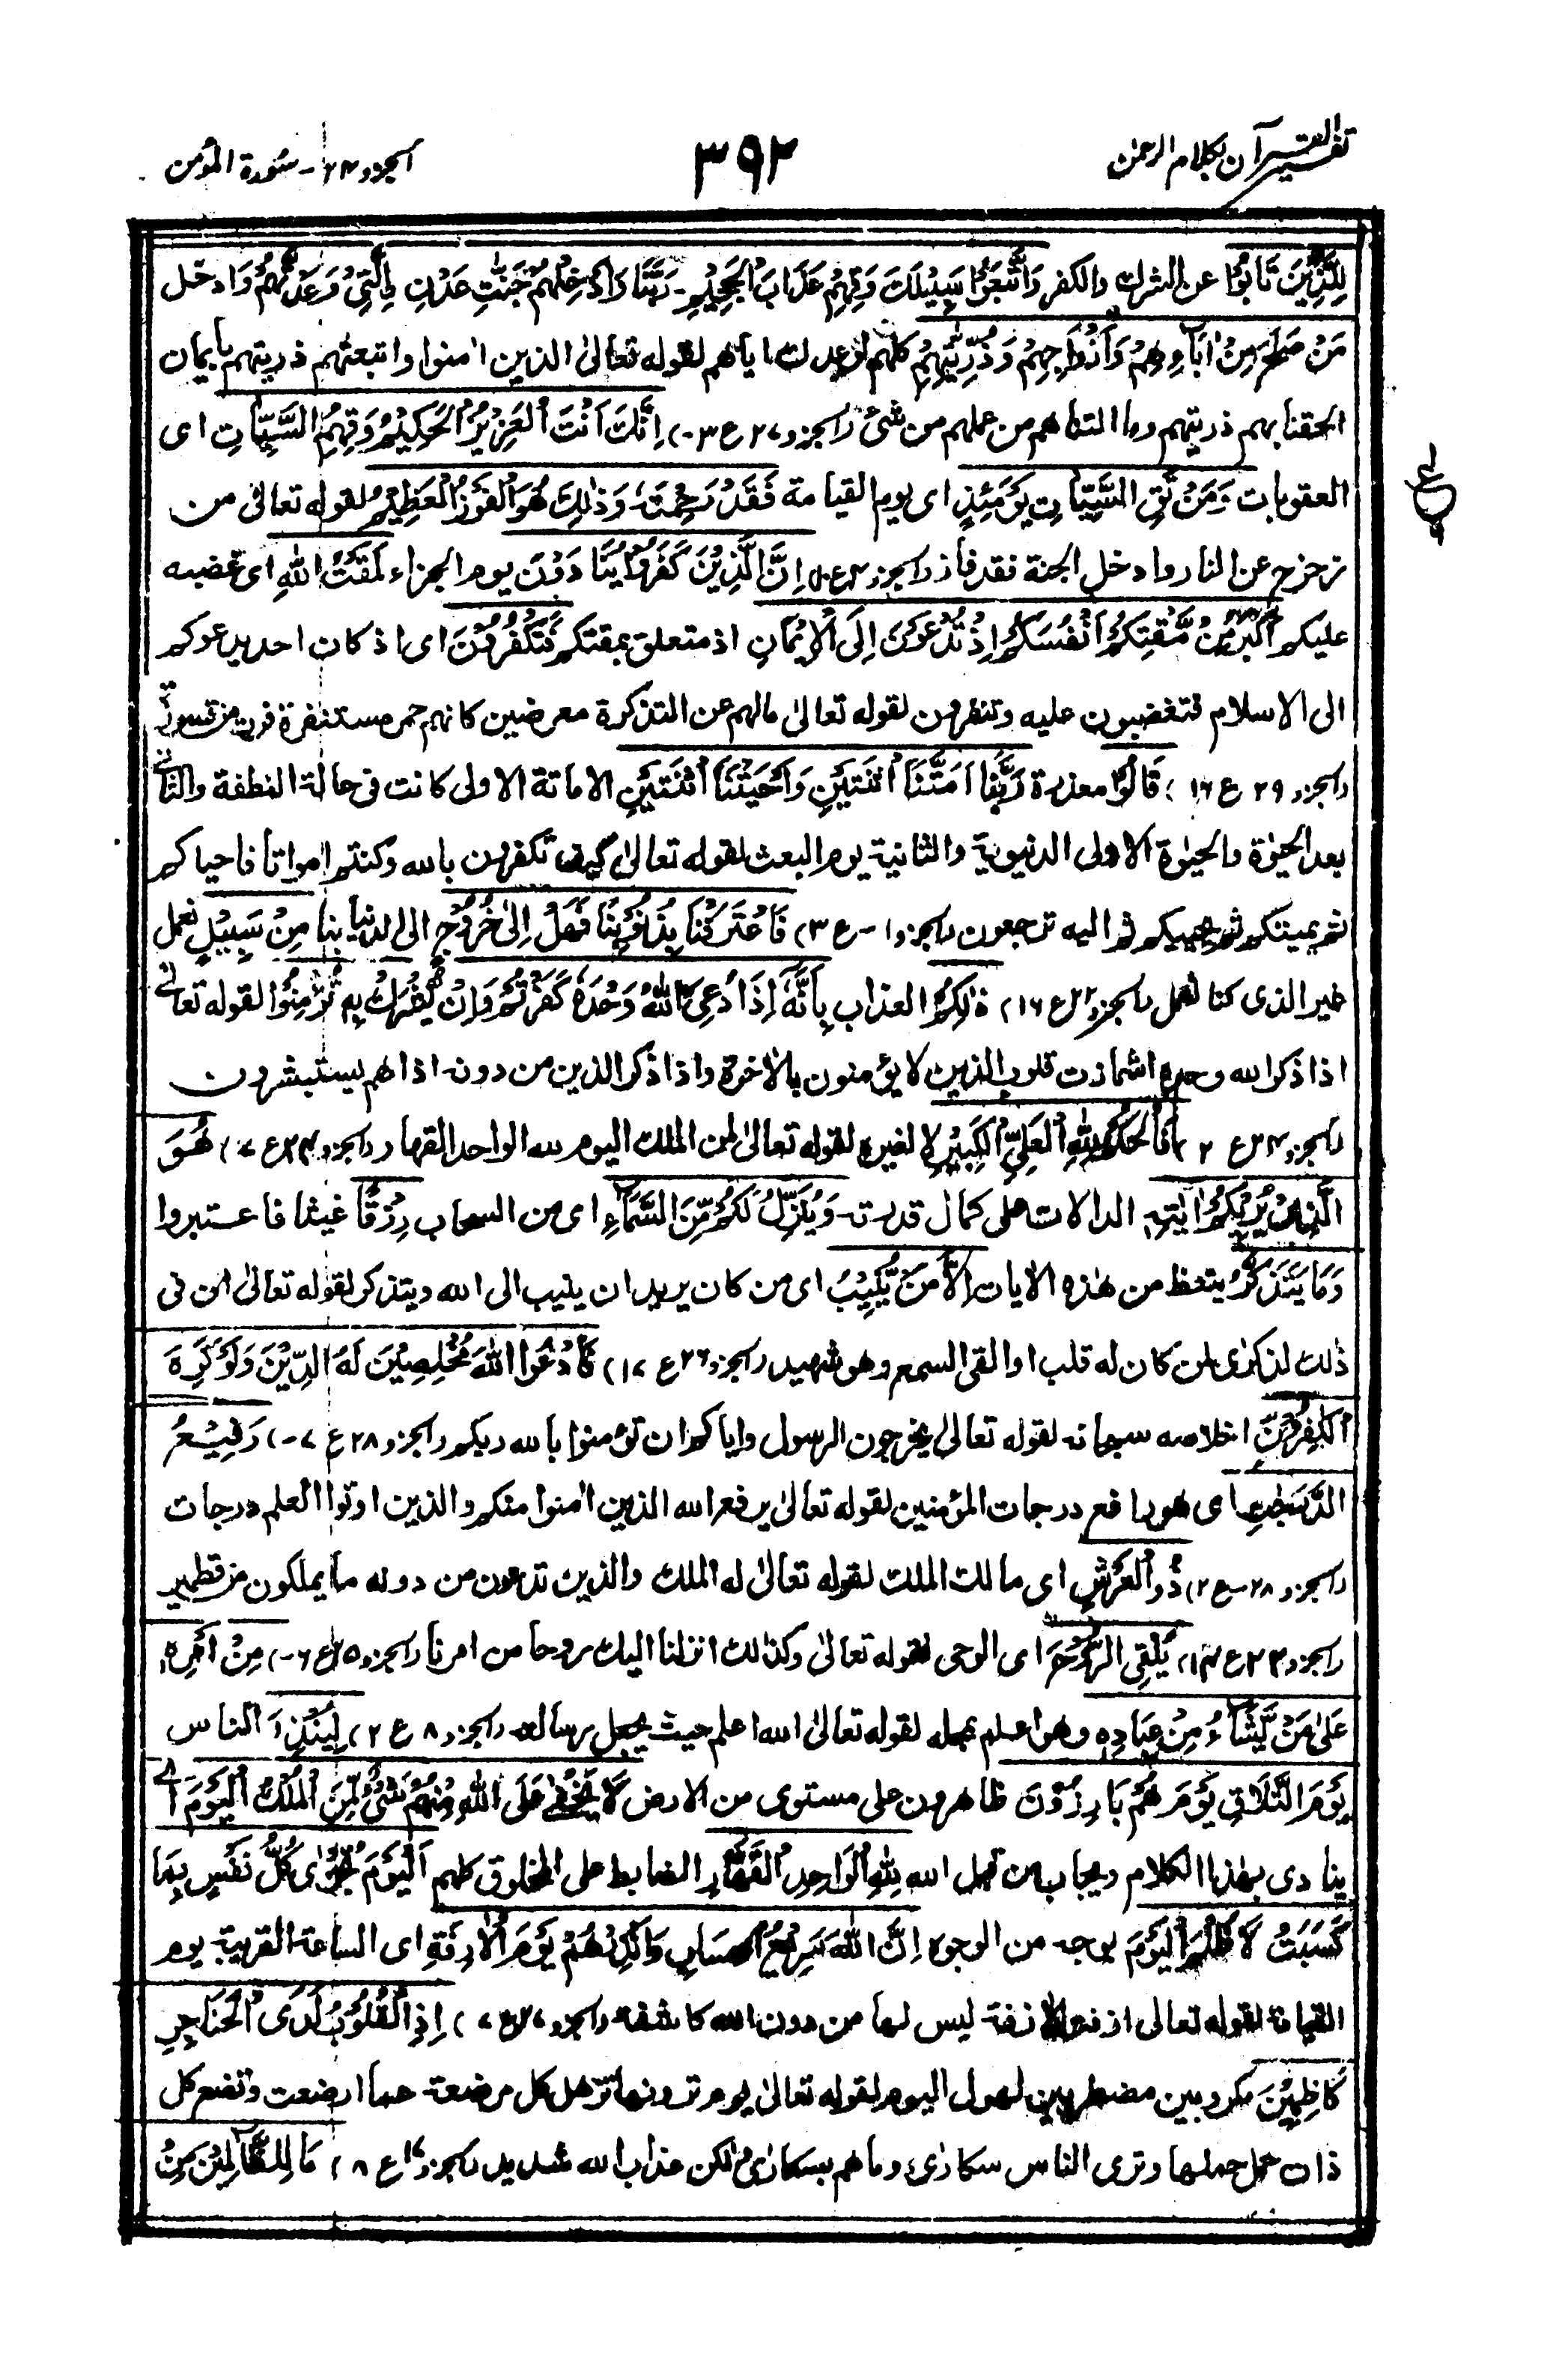 تفسير القرآن بكلام الرحمن
٣٩٢
الجزء ٢٤ - سُورة المؤمن
لِلَّذِيْنَ تَابُوْا عن الشرك والكفر وَاتَّبَعُوْا سَبِيْلَكَ وَقِهِمْ عَذَابَ الْجَحِيْمِ - رَبَّنَا وَاَدْخِلْهُمْ جَنّٰتِ عَدْنِ ۨالَّتِيْ وَعَدْتَّهُمْ وَادخل
مَنْ صَلَحَ مِنْ اٰبَآءِهِمْ وَاَزْوَاجِهِمْ وَذُرِّيّٰتِهِمْ كلهم لقوله تعالىٰ الذين اٰمنوا واتبعتهم ذريتهم بايمان
الحقنا بهم ذريتهم وما التناهم من عملهم من شئ (الجزو ٢٧ ع ٣-) اِنَّكَ اَنْتَ الْعَزِيْزُ الْحَكِيْمُ وَقِهِمُ السَّيِّاٰتِ اى
العقوبات وَمَنْ تَقِ السَّيِّاٰتِ يَوْمَئِذٍ اى يوم القيامة فَقَدْ رَحِمْتَهٗ وَذٰلِكَ هُوَ الْفَوْزُ الْعَظِيْمُ لقوله تعالىٰ من
زحزح عن النار وادخل الجنة فقد فاز (الجزو ٤ ع ١٠) اِنَّ الَّذِيْنَ كَفَرُوْا يُنَادَوْنَ يوم الجزاء لَمَقْتُ اللّٰهِ اى غضبه
عليكم اَكْبَرُ مِنْ مَّقْتِكُمْ اَنْفُسَكُمْ اِذْ تُدْعَوْنَ اِلَى الْاِيْمَانِ اذ متعلق بمقتكم فَتَكْفُرُوْنَ اى اذ كان احد يدعوكم
الى الاسلام فتغضبون عليه وتنفرون لقوله تعالىٰ مالهم عن التذكرة معرضين كانهم حمر مستنفرة فرت من قسورة
(الجزو ٢٩ ع ١٦) قَالُوْا معذرة رَبَّنَا اَمَتَّنَا اثْنَتَيْنِ وَاَحْيَيْتَنَا اثْنَتَيْنِ الاماتة الاولى كانت فى حالة النطفة والثانى
بعد الحيٰوة والحيٰوة الاولى الدنيوية والثانية يوم البعث لقوله تعالىٰ كيف تكفرون بالله وكنتم امواتا فاحياكم
ثم يميتكم ثم يحييكم ثم اليه ترجعون (الجزو ١ - ع ٣) فَاعْتَرَفْنَا بِذُنُوْبِنَا فَهَلْ اِلىٰ خُرُوْجٍ الى الدنيا بنا مِنْ سَبِيْلٍ نعمل
غير الذى كنا نعمل (الجزو ٢٢ ع ١٦) ذٰلِكُمُ العذاب بِاَنَّهٗ اِذَا دُعِىَ اللّٰهُ وَحْدَهٗ كَفَرْتُمْ وَاِنْ يُّشْرَكْ بِهٖ تُؤْمِنُوْا لقوله تعالىٰ
اذا ذكر الله وحده اشمازت قلوب الذين لا يؤمنون بالاٰخرة واذا ذكر الذين من دونه اذا هم يستبشرون
(الجزو ٢٤ ع ٢) فَالْحُكْمُ لِلّٰهِ الْعَلِيِّ الْكَبِيْرِ لا لغيره لقوله تعالىٰ لمن الملك اليوم لله الواحد القهار (الجزو ٢٤ ع ٧) هُوَ
الَّذِىْ يُرِيْكُمْ اٰيٰتِهٖ الدالات على كمال قدرته وَيُنَزِّلُ لَكُمْ مِّنَ السَّمَآءِ اى من السحاب رِزْقًا غيثا فاعتبروا
وَمَا يَتَذَكَّرُ يتعظ من هٰذه الاٰيات اِلَّا مَنْ يُّنِيْبُ اى من كان يريد ان ينيب الى الله ويتذكر لقوله تعالىٰ ان فى
ذٰلك لذكرٰى لمن كان له قلب او القى السمع وهو شهيد (الجزو ٢٦ ع ١٧) فَادْعُوا اللّٰهَ مُخْلِصِيْنَ لَهُ الدِّيْنَ وَلَوْ كَرِهَ
الْكٰفِرُوْنَ اخلاصه سبحانه لقوله تعالىٰ يخرجون الرسول واياكم ان تؤمنوا بالله ربكم (الجزو ٢٨ ع ٧-) رَفِيْعُ
الدَّرَجٰتِ اى هو رافع درجات المؤمنين لقوله تعالىٰ يرفع الله الذين اٰمنوا منكم والذين اوتوا العلم درجات
(الجزو ٢٨ - ع ٢) ذُو الْعَرْشِ اى مالك الملك لقوله تعالىٰ له الملك والذين تدعون من دونه ما يملكون من قطمير
(الجزو ٢٢ ع ١٤) يُلْقِى الرُّوْحَ اى الوحى لقوله تعالىٰ وكذلك انزلنا اليك روحا من امرنا (الجزو ٢٥ ع ٦-) مِنْ اَمْرِهٖ
عَلىٰ مَنْ يَّشَآءُ مِنْ عِبَادِهٖ وهو اعلم بمحله لقوله تعالىٰ الله اعلم حيث يجعل رسالته (الجزو ٨ ع ٢) لِيُنْذِرَ الناس
يَوْمَ التَّلَاقِ يَوْمَ هُمْ بَارِزُوْنَ ظاهرون على مستوى من الارض لَا يَخْفٰى عَلَى اللّٰهِ مِنْهُمْ شَىْءٌ لِمَنِ الْمُلْكُ الْيَوْمَ اى
ينادى بهٰذا الكلام ويجاب من قبل الله لِلّٰهِ الْوَاحِدِ الْقَهَّارِ الضابط على المخلوق كلهم اَلْيَوْمَ تُجْزٰى كُلُّ نَفْسٍ بِمَا
كَسَبَتْ لَا ظُلْمَ الْيَوْمَ بوجه من الوجوه اِنَّ اللّٰهَ سَرِيْعُ الْحِسَابِ وَاَنْذِرْهُمْ يَوْمَ الْاٰزِفَةِ اى الساعة القريبة يوم
القيامة لقوله تعالى ازفت الاٰزفة ليس لها من دون الله كاشفة (الجزو ٢٧ ع ٧) اِذِ الْقُلُوْبُ لَدَى الْحَنَاجِرِ
كَاظِمِيْنَ مكروبين مضطربين لهول اليوم لقوله تعالىٰ يوم ترونها تذهل كل مرضعة عما ارضعت وتضع كل
ذات حمل حملها وترى الناس سكارىٰ وما هم بسكارىٰ ولكن عذاب الله شديد (الجزو ١٧ ع ٨) مَا لِلظّٰلِمِيْنَ مِنْ